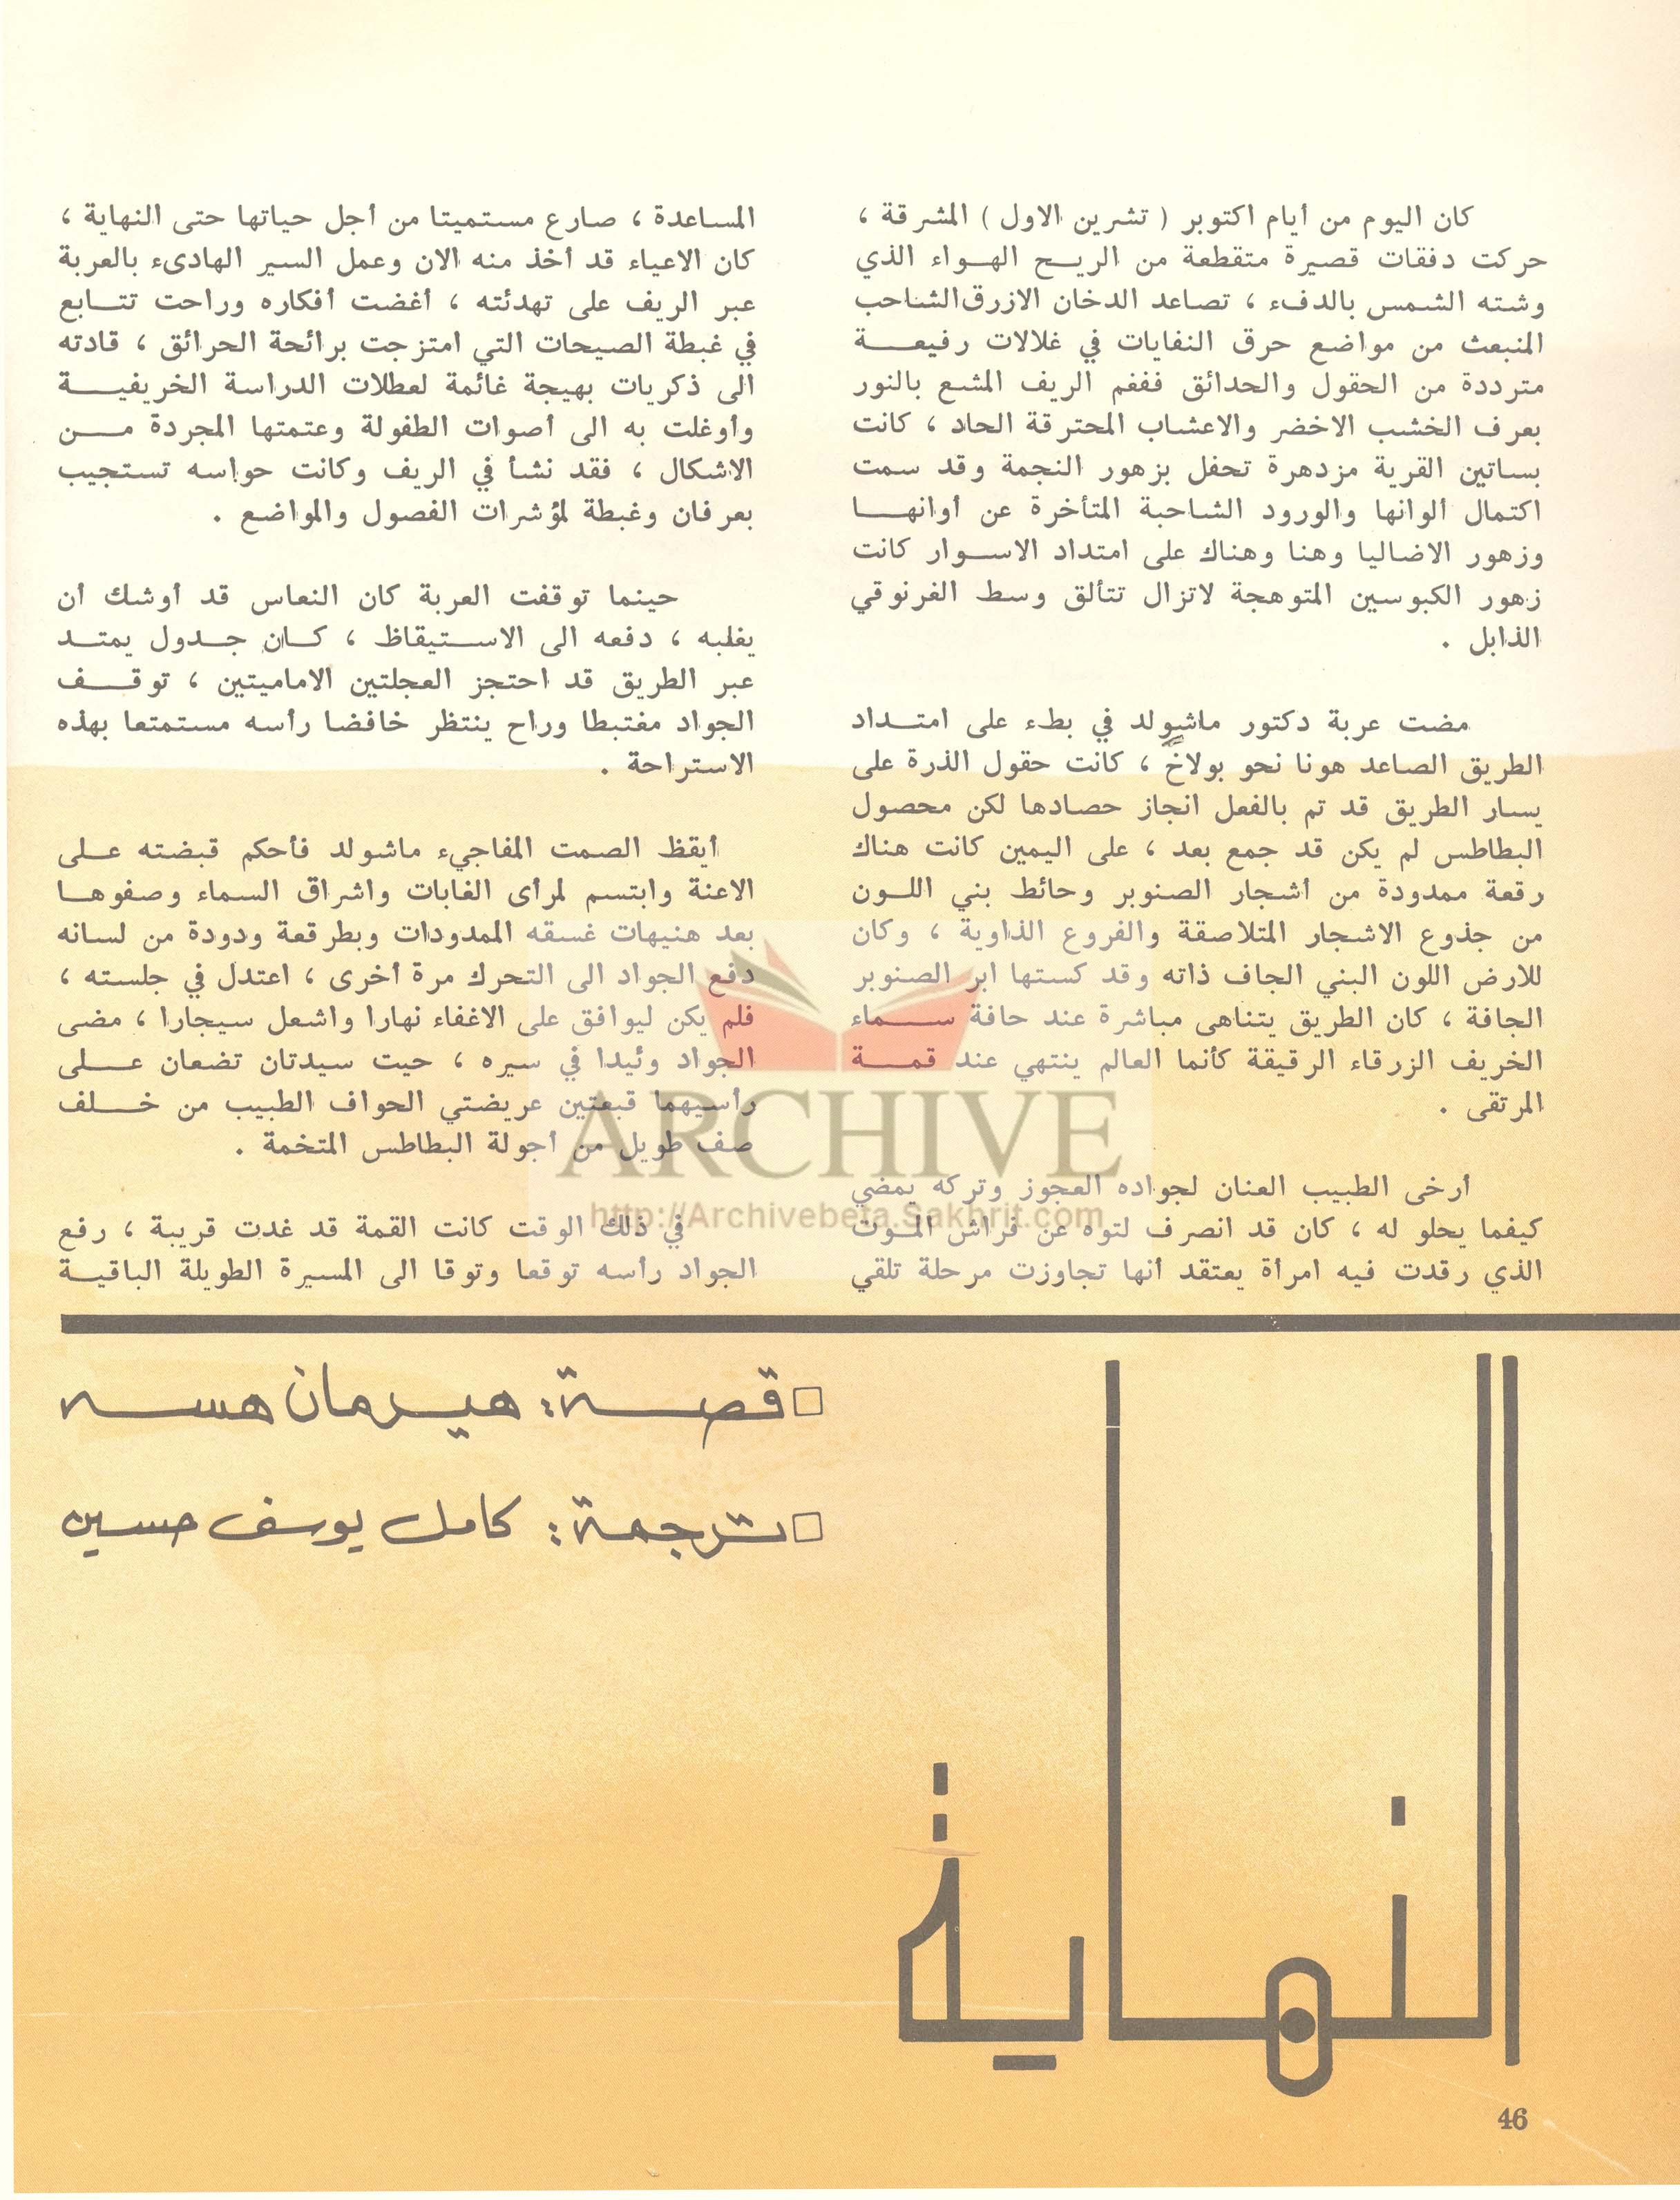 كان اليوم من أيام اكتوبر ( تشرين الاول ) المشرقة ،
حركت دفقات قصيرة متقطعة من الريح الهواء الذي
وشته الشمس بالدفء ، تصاعد الدخان الازرق الشاحب
المنبعث من مواضع حرق النفايات في غلالات رفيعة
مترددة من الحقول والحدائق ففغم الريف المشع بالنور
بعرف الخشب الاخضر والاعشاب المحترقة الحاد ، كانت
بساتين القرية مزدهرة تحفل بزهور النجمة وقد سمت
اكتمال ألوانها والورود الشاحبة المتأخرة عن أوانها
وزهور الاضاليا وهنا وهناك على امتداد الاسوار كانت
زهور الكبوسين المتوهجة لاتزال تتألق وسط الفرنوقي
الذابل .
مضت عربة دكتور ماشولد في بطء على امتداد
الطريق الصاعد هونا نحو بولاخ ، كانت حقول الذرة على
يسار الطريق قد تم بالفعل انجاز حصادها لكن محصول
البطاطس لم يكن قد جمع بعد ، على اليمين كانت هناك
رقعة ممدودة من أشجار الصنوبر وحائط بني اللون
من جذوع الاشجار المتلاصقة والفروع الذاوية ، وكان
للارض اللون البني الجاف ذاته وقد كستها ابر الصنوبر
الجافة ، كان الطريق يتناهى مباشرة عند حافة سماء
الخريف الزرقاء الرقيقة كأنما العالم ينتهي عند قمة
المرتقى .
أرخى الطبيب العنان لجواده العجوز وتركه يمضي
كيفما يحلو له ، كان قد انصرف لتوه عن فراش الموت
الذي رقدت فيه امرأة يعتقد أنها تجاوزت مرحلة تلقي
المساعدة ، صارع مستميتا من أجل حياتها حتى النهاية ،
كان الاعياء قد أخذ منه الان وعمل السير الهادىء بالعربة
عبر الريف على تهدئته ، أغضت أفكاره وراحت تتابع
في غبطة الصيحات التي امتزجت برائحة الحرائق ، قادته
الى ذكريات بهيجة غائمة لعطلات الدراسة الخريفية
وأوغلت به الى أصوات الطفولة وعتمتها المجردة من
الاشكال ، فقد نشأ في الريف وكانت حواسه تستجيب
بعرفان وغبطة لمؤشرات الفصول والمواضع .
حينما توقفت العربة كان النعاس قد أوشك أن
يغلبه ، دفعه الى الاستيقاظ ، كان جدول يمتد
عبر الطريق قد احتجز العجلتين الاماميتين ، توقف
الجواد مغتبطا وراح ينتظر خافضا رأسه مستمتعا بهذه
الاستراحة .
أيقظ الصمت المفاجيء ماشولد فأحكم قبضته على
الاعنة وابتسم لمرأى الغابات واشراق السماء وصفوها
بعد هنيهات غسقه الممدودات وبطرقعة ودودة من لسانه
دفع الجواد الى التحرك مرة أخرى ، اعتدل في جلسته ،
فلم يكن ليوافق على الاغفاء نهارا واشعل سيجارا ، مضى
الجواد وئيدا في سيره ، حيت سيدتان تضعان على
رأسيهما قبعتين عريضتي الحواف الطبيب من خلف
صف طويل من أجولة البطاطس المتخمة .
في ذلك الوقت كانت القمة قد غدت قريبة ، رفع
الجواد رأسه توقعا وتوقا الى المسيرة الطويلة الباقية
ARCHIVE
http://Archivebeta.Sakhrit.com
قصة: هيرمان هسه
ترجمة: كامل يوسف حسين
النهاية
46